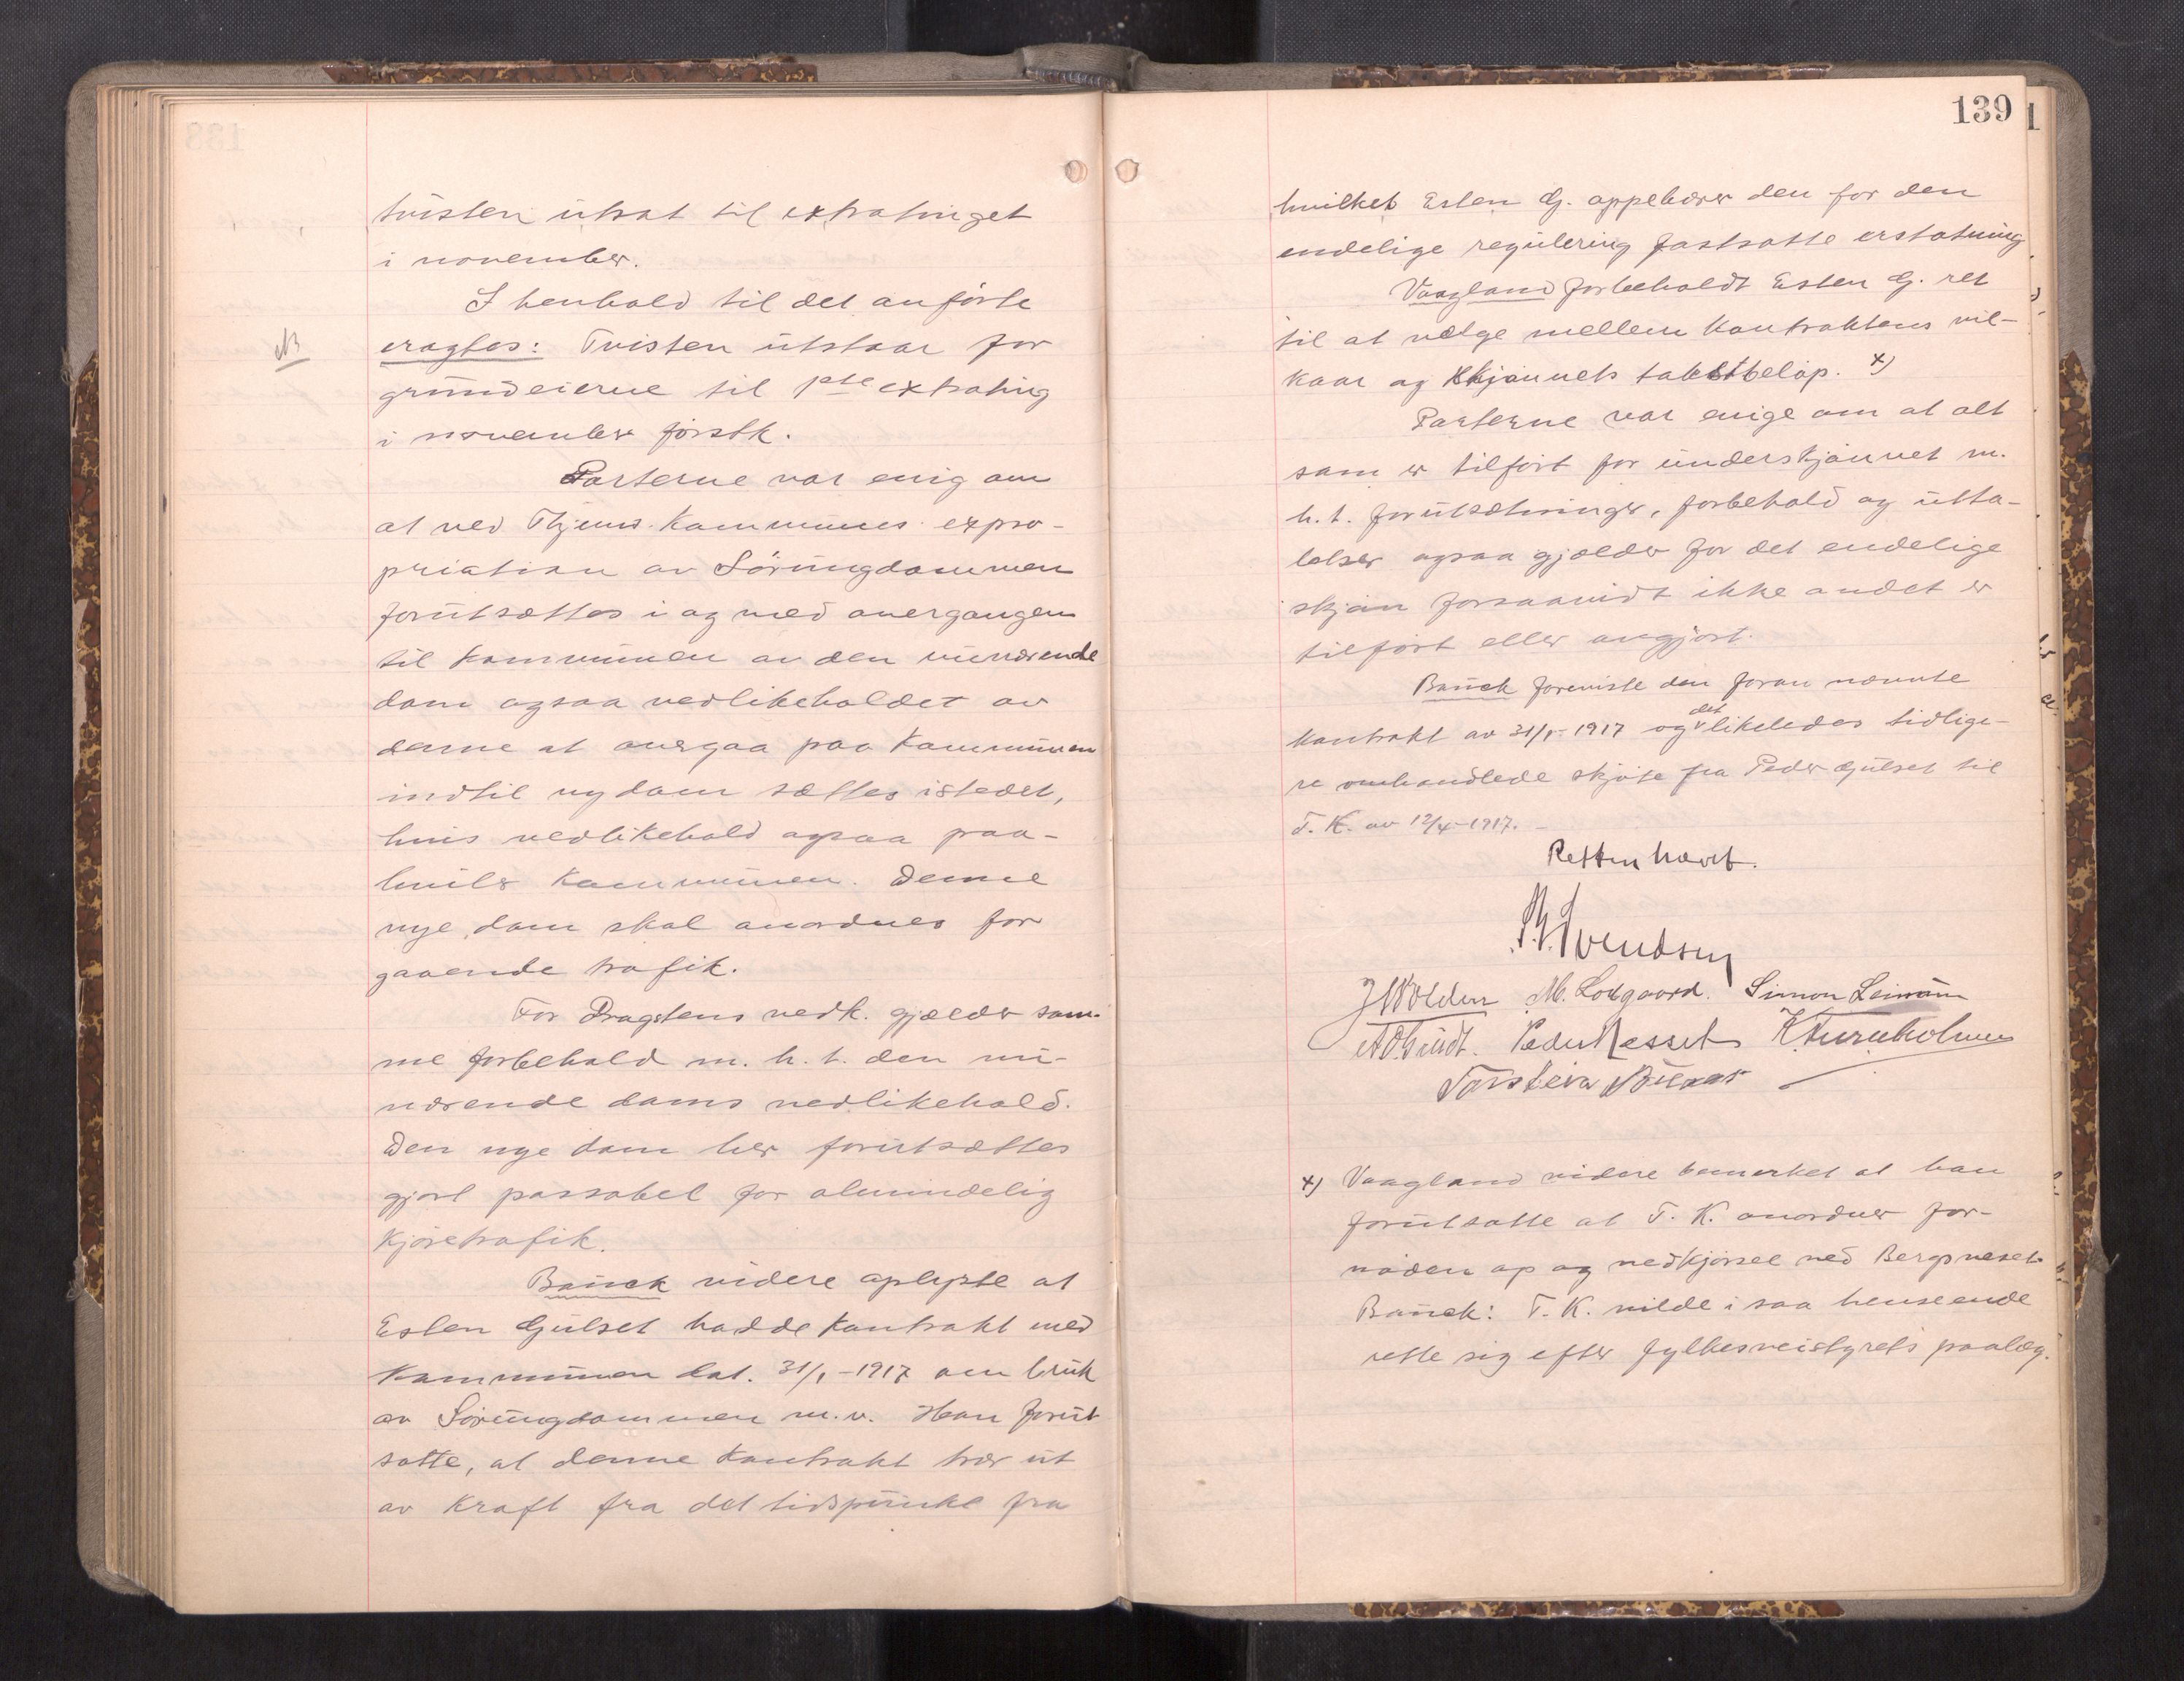 tvisten utsat til extratinget
i november.
I henhold til det anførte
NB
eragtes: Tvisten utstaar for
grundeierne til 1ste extrating
i november førstk.
Parterne var enig om
at ved Tkjems Kommunes expro-
priation av Söringdammen
forutsættes i og med overgangen
til kommunen av den nuværende
dam ogsaa vedlikeholdet av
denne at overgaa paa kommunen
indtil ny dam sættes istedet,
hvis vedlikehold ogsaa paa-
hviler kommunen. Denne
nye dam skal anordnes for
gaaende trafik.
For Dragstens vedk. gjælder sam-
me forbehold m. h. t. den nu-
værende dams vedlikehold.
Den nye dam her forutsættes
gjort passabel for almindelig
kjøretrafik.
Bauck videre oplyste at
Esten Gulset hadde kontrakt med
kommunen dat. 31/1-1917 om bruk
av Söringdammen m.v. Han forut
satte, at denne kontrakt trær ut
av kraft fra det tidspunkt fra
139
hvilket Esten G. oppebærer den for den
endelige regulering fastsatte erstatning
Vaagland forbeholdt Esten G. ret
til at vælge mellem kontraktens vil-
kaar og skjønnets takstbeløp. x)
Parterne var enige om at alt
som er tilført for underskjønnet m.
h. t. forutsætninger, forbehold og utta-
lelser ogsaa gjælder for det endelige
skjøn forsaavidt ikke andet er
tilført eller avgjort.
Bauck foreviste den foran nævnte
kontrakt av 31/1-1917 og det likeledes tidlige-
re omhandlede skjøte fra Peder Gulset til
T. K. av 12/4-1917. -
Retten hævet.
Svendsen
J Wolden M. Lodgaard. Simon Leirvam
Peder Nesset K Furuholmen
Torstein
x) Vaagland videre bemerket at han
forutsatte at T. K. anordner for-
nøden op og nedkjørsel ved Bergsneset.
Bauck: T. K. vilde i saa henseende
rette sig efter fylkesveistyrets paalæg.